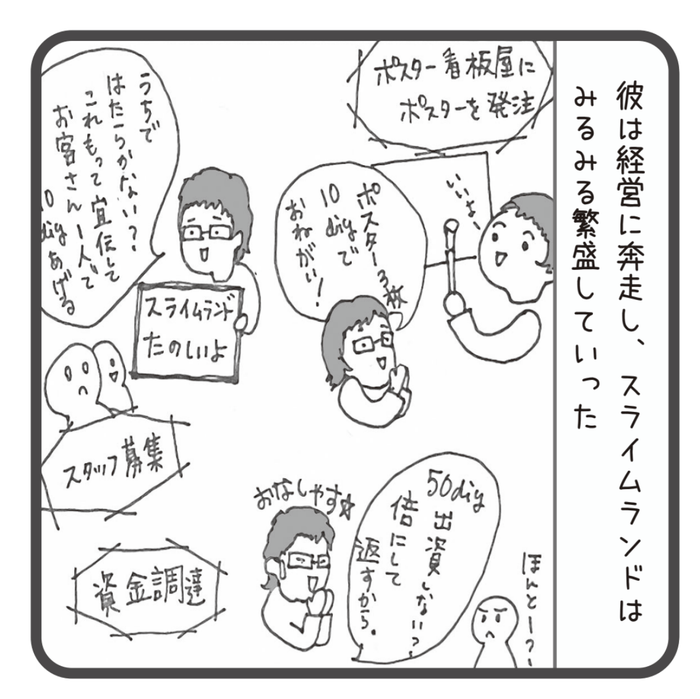 彼は経営に奔走し、スライムランドは
みるみる繁盛していった
ポスター看板屋に
ポスターを発注
いいなー
ポスター3枚
10digで
おねがい!
うちで
はたらかない?
これもって宣伝して
お客さん1人で
10digあげる
スライムランド
たのしいよ
スタッフ募集
資金調達
おなしゃす☆
50dig
出資しない?
倍にして
返すから。
ほんとー?